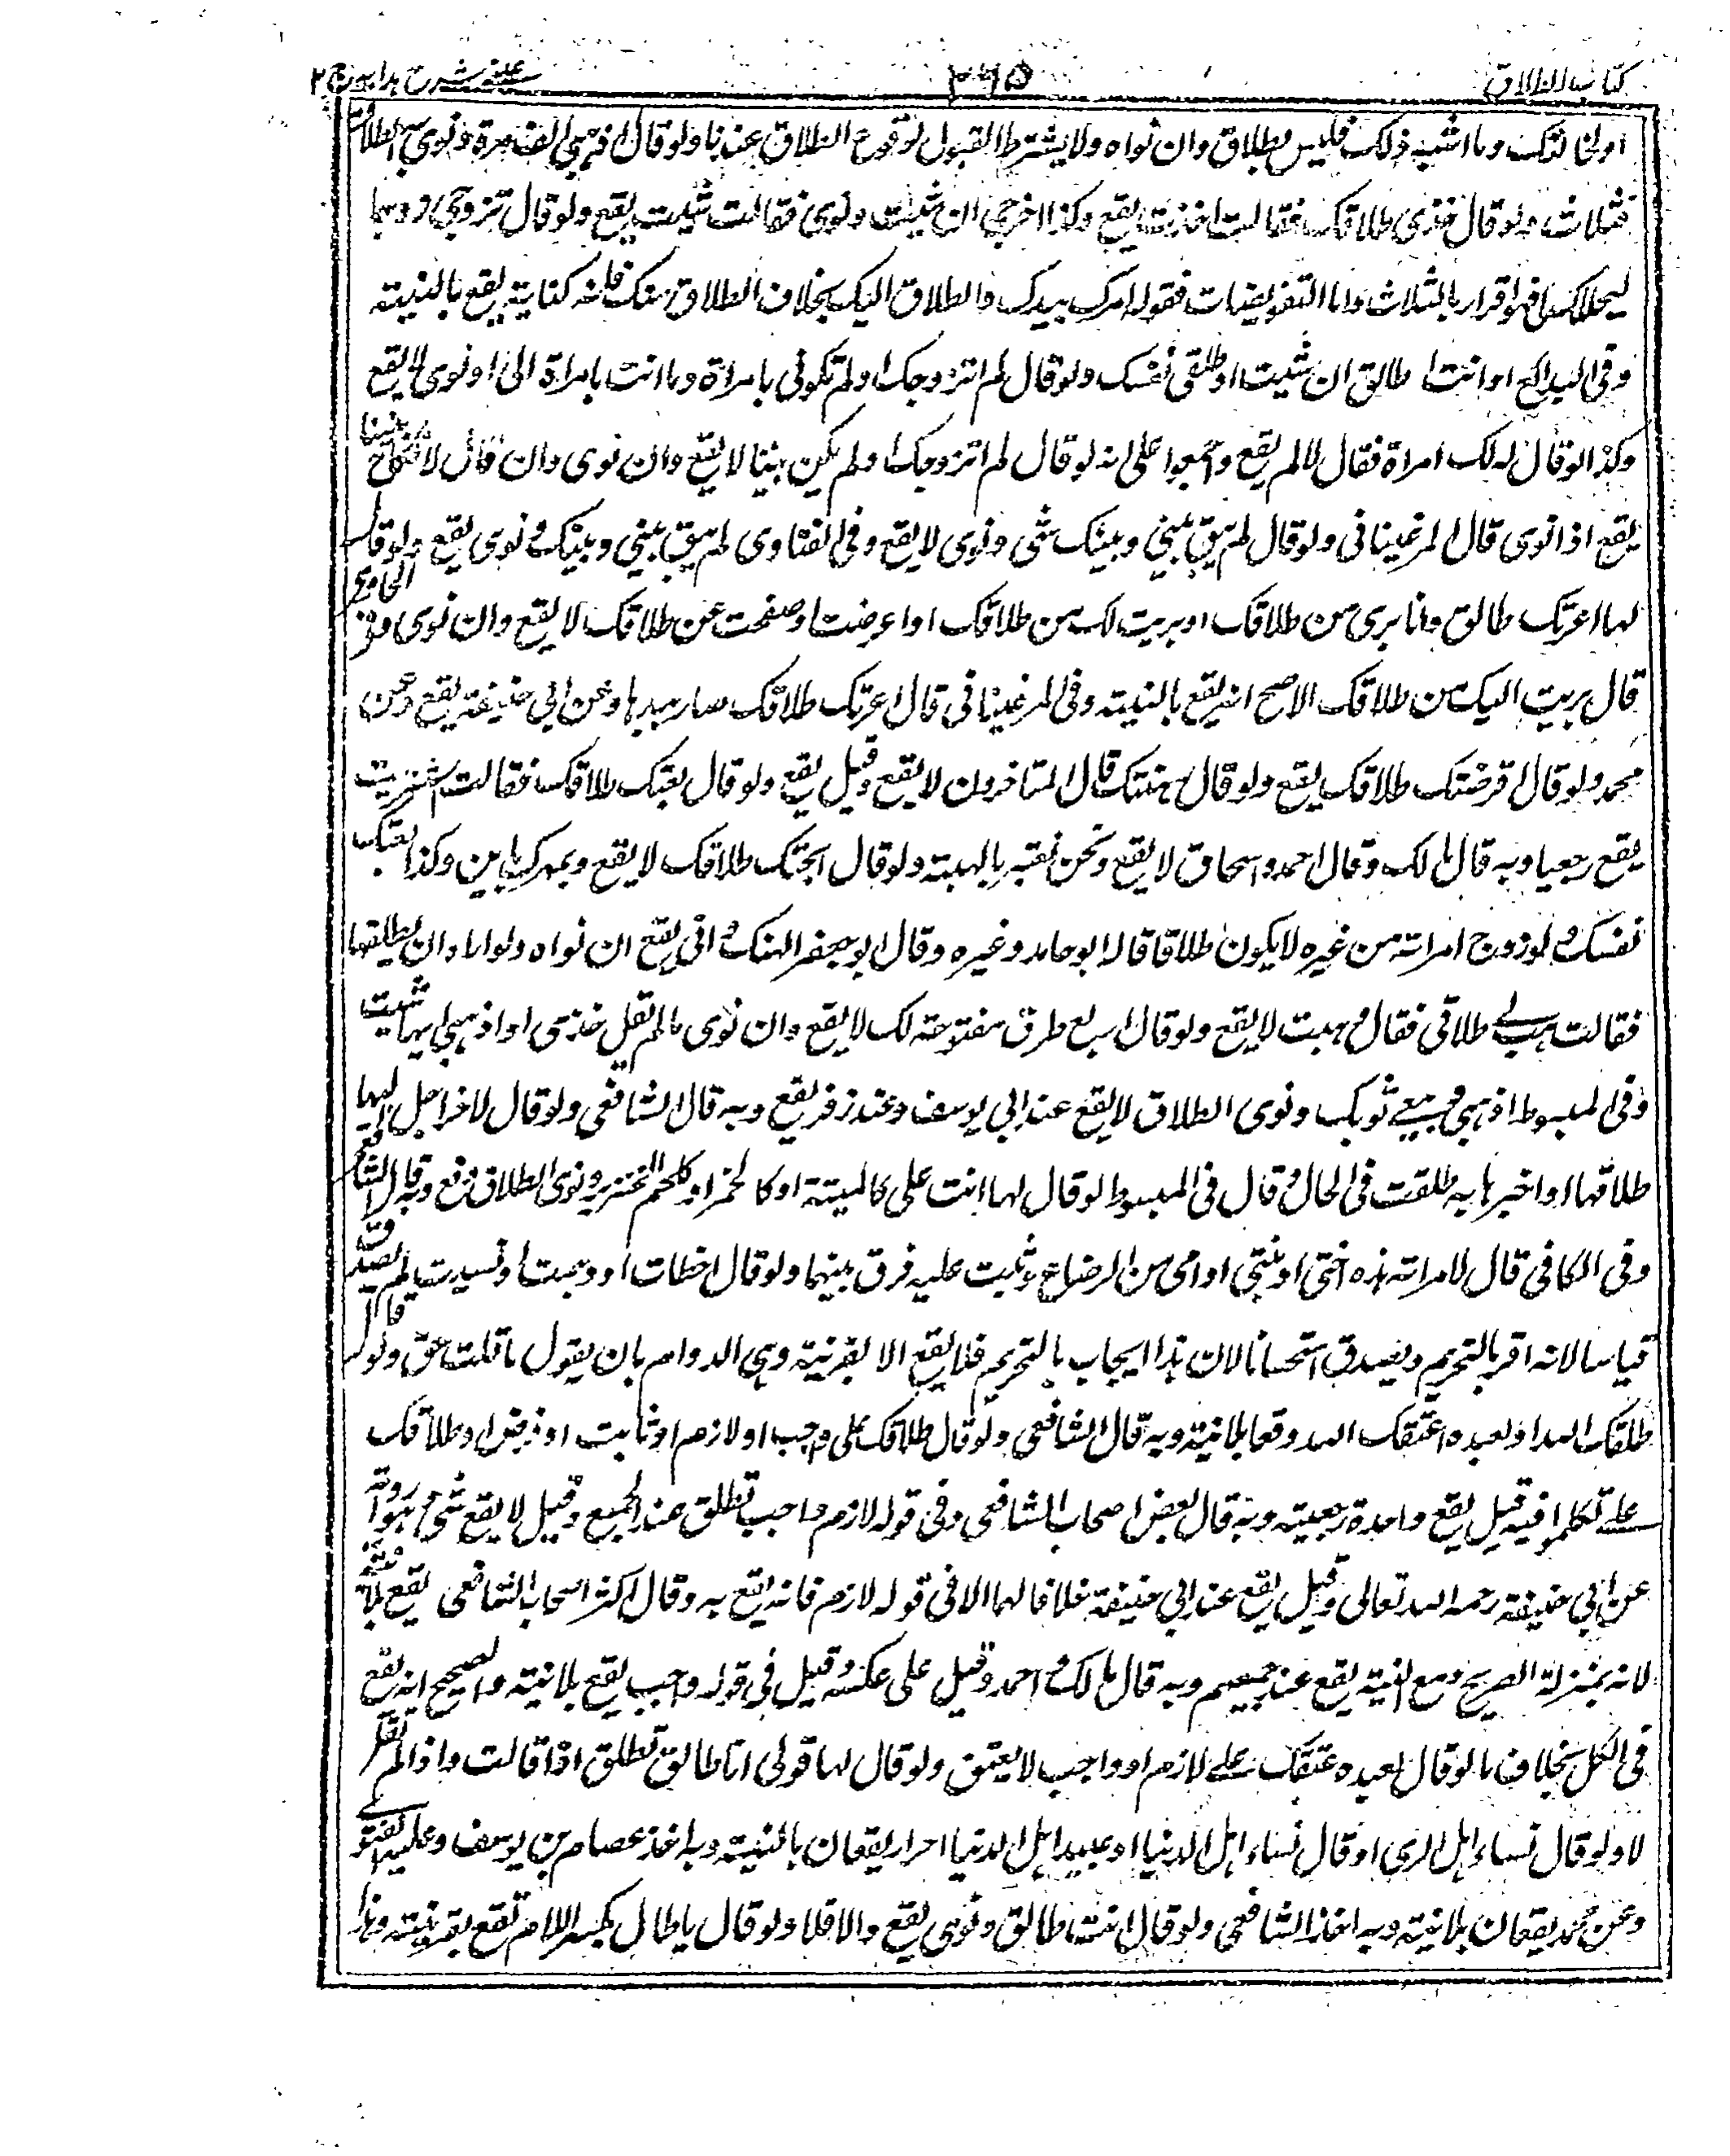 كتاب الطلاق ٣٦٥ عينى شرح هدايه ج ٢
او لخالتك وما اشبه ذلك فليس بطلاق وان نواه ولا يشترط القبول لوقوع الطلاق عندنا ولو قال اذهبي الف مرة ونوى به الطلاق
فثلاث ولو قال خذى طلاقك فقالت اخذت يقع وكذا اخرجي ان شئت ونوى فقالت شئت يقع ولو قال تزوجي زوجا
ليحلك لى فهو اقرار بالثلاث واما التفويضات فقوله امرك بيدك والطلاق اليك بخلاف الطلاق منك فانه كناية يقع بالنية
وفى البدائع او انت طالق ان شئت او طلقى نفسك ولو قال لم اتزوجك او لم تكونى بامراة وما انت بامراة لى او نوى لا يقع
وكذا لو قال له لك امراة فقال لا لم يقع واجمعوا على انه لو قال لم اتزوجك او لم يكن بيننا لا يقع وان نوى وان قال لا نكاح بيننا
يقع اذا نوى قال المرغينانى ولو قال لم يبق بينى وبينك شئ ونوى لا يقع وفى الفتاوى لم يبق بينى وبينك ونوى يقع ولو قال
لها اعرتك طالق وانا برى من طلاقك او بريت لك من طلاقك او اعرضت او صفحت عن طلاقك لا يقع وان نوى وفى الحاوى
قال بريت اليك من طلاقك الاصح انه يقع بالنية وفى المرغينانى قال اعرتك طلاقك صار بيدها وعن ابى حنيفة يقع وعن
محمد ولو قال اقرضتك طلاقك يقع ولو قال رهنتك قال المتاخرون لا يقع وقيل يقع ولو قال بعتك طلاقك فقالت اشتريت
يقع رجعيا وبه قال مالك وقال احمد واسحاق لا يقع ونحن نعتبره بالهبة ولو قال ابحتك طلاقك لا يقع وبمهرك باين وكذا بعتك
نفسك ولو زوج امراته من غيره لا يكون طلاقا قاله ابو حامد وغيره وقال ابو جعفر الهندوانى يقع ان نواه ولو اراد ان يطلقها
فقالت هب لى طلاقى فقال وهبت لا يقع ولو قال اربع طرق مفتوحة لك لا يقع وان نوى ما لم يقل خذى او اذهبى ايها شئت
وفى المبسوط اذهبى وبيعى ثوبك ونوى الطلاق لا يقع عند ابى يوسف وعند زفر يقع وبه قال الشافعى ولو قال لاخر احمل اليها
طلاقها او اخبرها به طلقت فى الحال وقال فى المبسوط لو قال لها انت على كالميتة او كالخمر او كلحم الخنزير ونوى الطلاق وقع وبه قال الشافعى
وفى الكافى قال لامراته هذه اختى او بنتى او امى من الرضاع وثبت عليه فرق بينهما ولو قال اخطات او وهمت او نسيت لم يصدق
قياسا لانه اقر بالتحريم ويصدق استحسانا لان هذا ايجاب بالتحريم فلا يقع الا بقرينة وهى الدوام بان يقول ما قلت حق ولو قال
طلقك الله او لعبده اعتقك الله وقعا بلا نية وبه قال الشافعى ولو قال طلاقك على واجب او لازم او ثابت او فرض او طلاقك
على تكلموا فيه قيل يقع واحدة رجعية وبه قال بعض اصحاب الشافعى وفى قوله لازم وواجب تطلق عند الجميع وقيل لا يقع شئ وهو رواية
عن ابى حنيفة رحمه الله تعالى وقيل يقع عند ابى حنيفة خلافا لهما الا فى قوله لازم فانه يقع به وقال اكثر اصحاب الشافعى يقع بلا نية
لانه بمنزلة الصريح ومع النية يقع عند جميعهم وبه قال مالك واحمد وقيل على عكسه وقيل فى قوله واجب يقع بلا نية والصحيح انه يقع
فى الكل بخلاف ما لو قال لعبده عتقك على لازم او واجب لا يعتق ولو قال لها قولى انا طالق تطلق اذا قالت واذا لم تقل
لا ولو قال نساء اهل الرى او قال نساء اهل الدنيا او عبيد اهل الدنيا احرار يقعان بالنية وبه اخذ عصام بن يوسف وعليه الفتوى
وعن محمد يقعان بلا نية وبه اخذ الشافعى ولو قال انت طالق ونوى يقع والا فلا ولو قال يا طال بكسر اللام تقع بقرينة وهذا